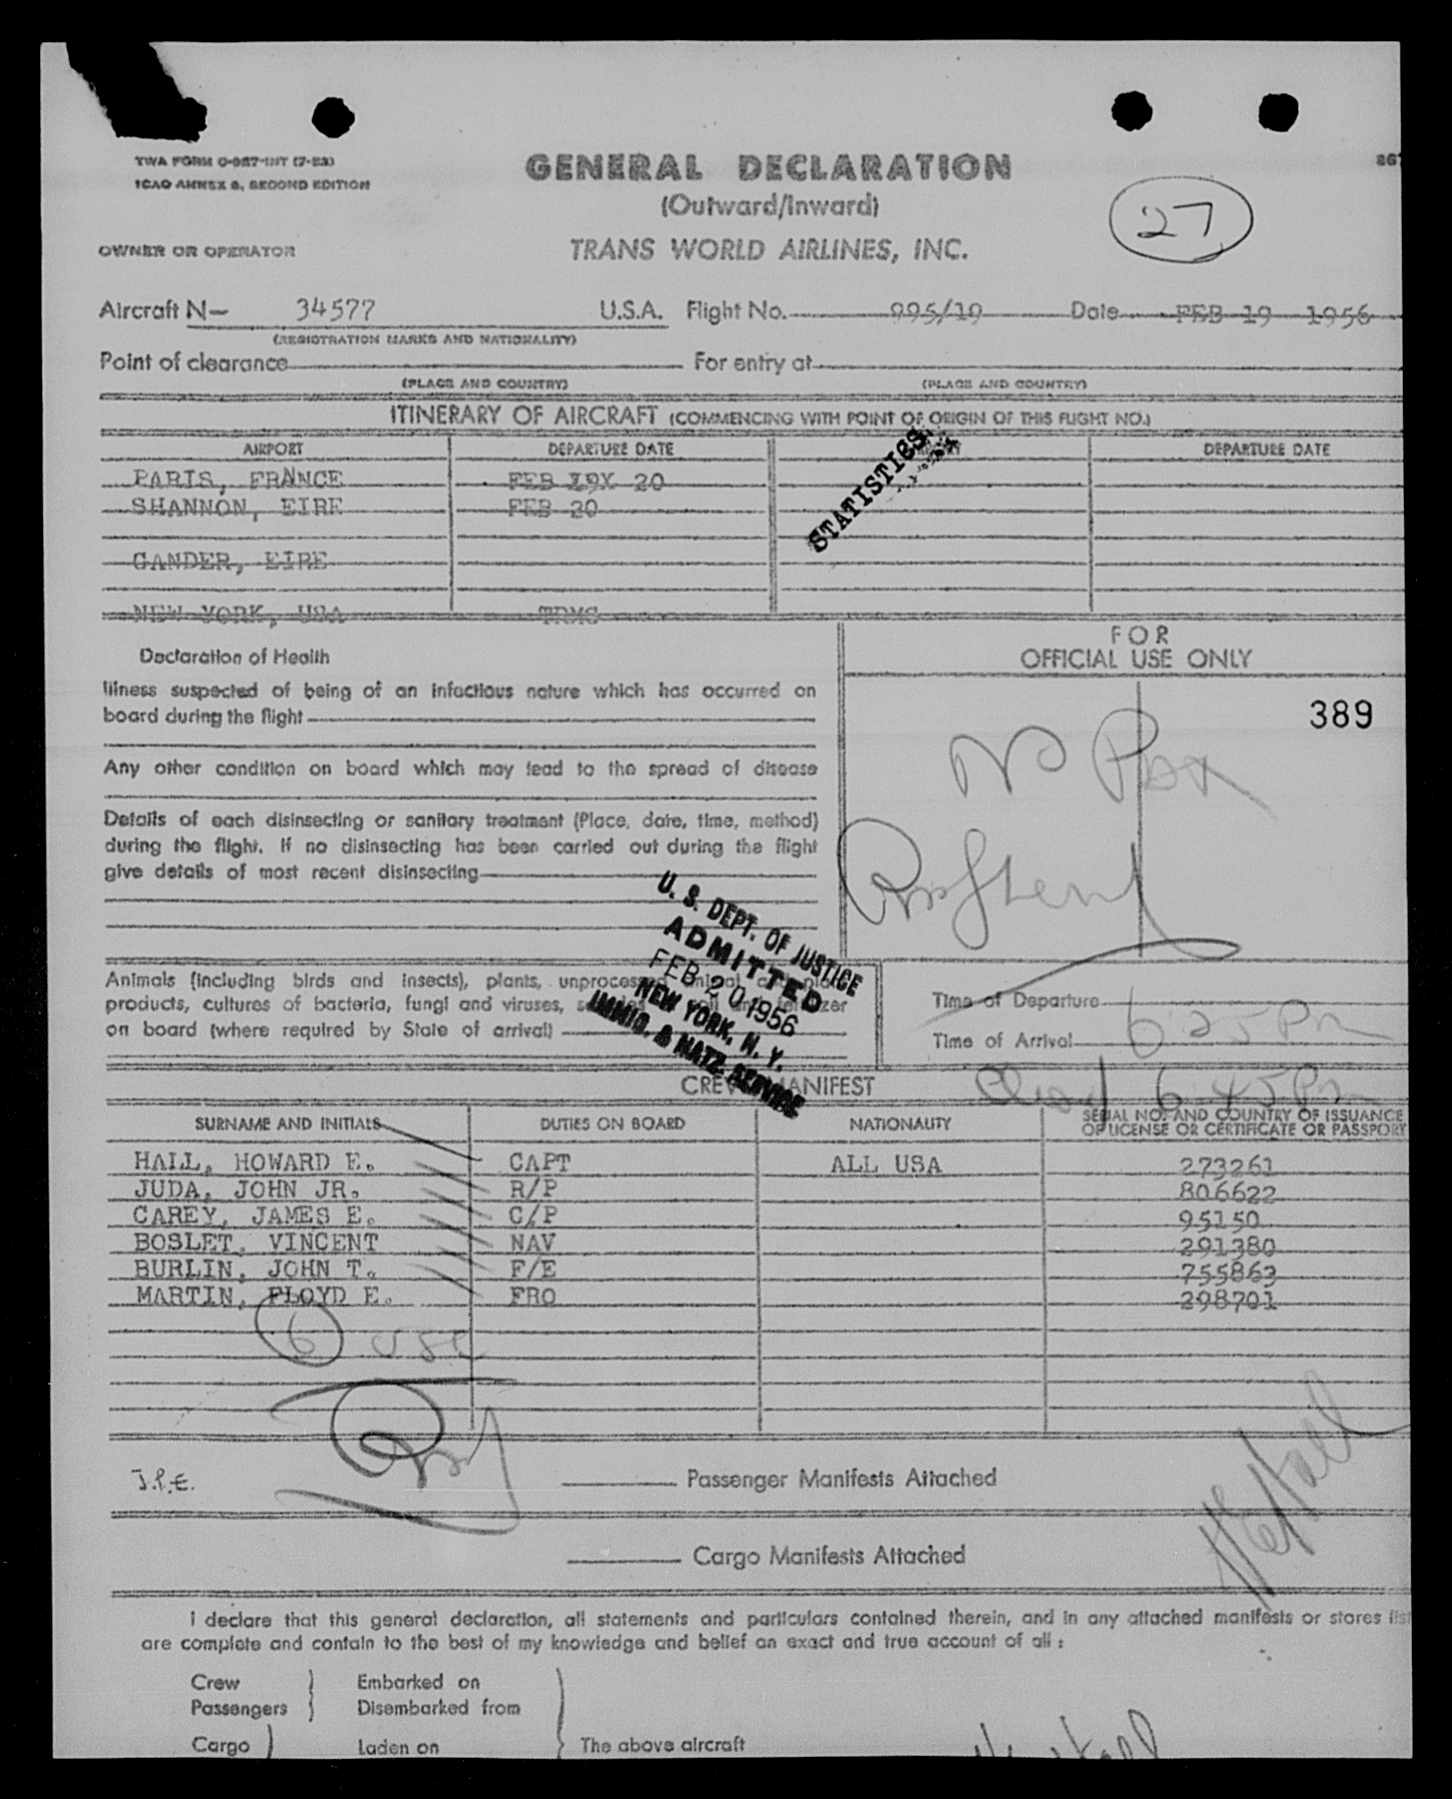 TWA FORM O-987-INT (7-53)
ICAO ANNEX 9, SECOND EDITION
GENERAL DECLARATION
(Outward/Inward)
27
OWNER OR OPERATOR
TRANS WORLD AIRLINES, INC.
Aircraft N- 34577 U.S.A. Flight No. 995/19 Date FEB 19 1956
(REGISTRATION MARKS AND NATIONALITY)
Point of clearance For entry at
(PLACE AND COUNTRY) (PLACE AND COUNTRY)
ITINERARY OF AIRCRAFT (COMMENCING WITH POINT OF ORIGIN OF THIS FLIGHT NO.)
AIRPORT DEPARTURE DATE DEPARTURE DATE
STATISTICS
PARIS, FRANCE FEB 19X 20
SHANNON, EIRE FEB 20
GANDER, EIRE
NEW YORK, USA TRMS
Declaration of Health
FOR
OFFICIAL USE ONLY
Illness suspected of being of an infectious nature which has occurred on
board during the flight
389
No Pax
Any other condition on board which may lead to the spread of disease
Details of each disinsecting or sanitary treatment (Place, date, time, method)
during the flight. If no disinsecting has been carried out during the flight
give details of most recent disinsecting
U. S. DEPT. OF JUSTICE
ADMITTED
FEB 20 1956
NEW YORK, N. Y.
IMMIG. & NATZ. SERVICE
Animals (including birds and insects), plants, unprocessed animal and plant
products, cultures of bacteria, fungi and viruses,
on board (where required by State of arrival)
Time of Departure
Time of Arrival 6 25 Pm
6 45 Pm
CREW MANIFEST
SURNAME AND INITIALS DUTIES ON BOARD NATIONALITY SERIAL NOS AND COUNTRY OF ISSUANCE
OF LICENSE OR CERTIFICATE OR PASSPORT
HALL, HOWARD E. CAPT ALL USA 273261
JUDA, JOHN JR. R/P 806622
CAREY, JAMES E. C/P 95150
BOSLET, VINCENT NAV 291380
BURLIN, JOHN T. F/E 755863
MARTIN, FLOYD E. FRO 298701
6 USC
J.P.E.
Passenger Manifests Attached
HEHall
Cargo Manifests Attached
I declare that this general declaration, all statements and particulars contained therein, and in any attached manifests or stores list
are complete and contain to the best of my knowledge and belief an exact and true account of all :
Crew Embarked on
Passengers Disembarked from
Cargo Laden on The above aircraft